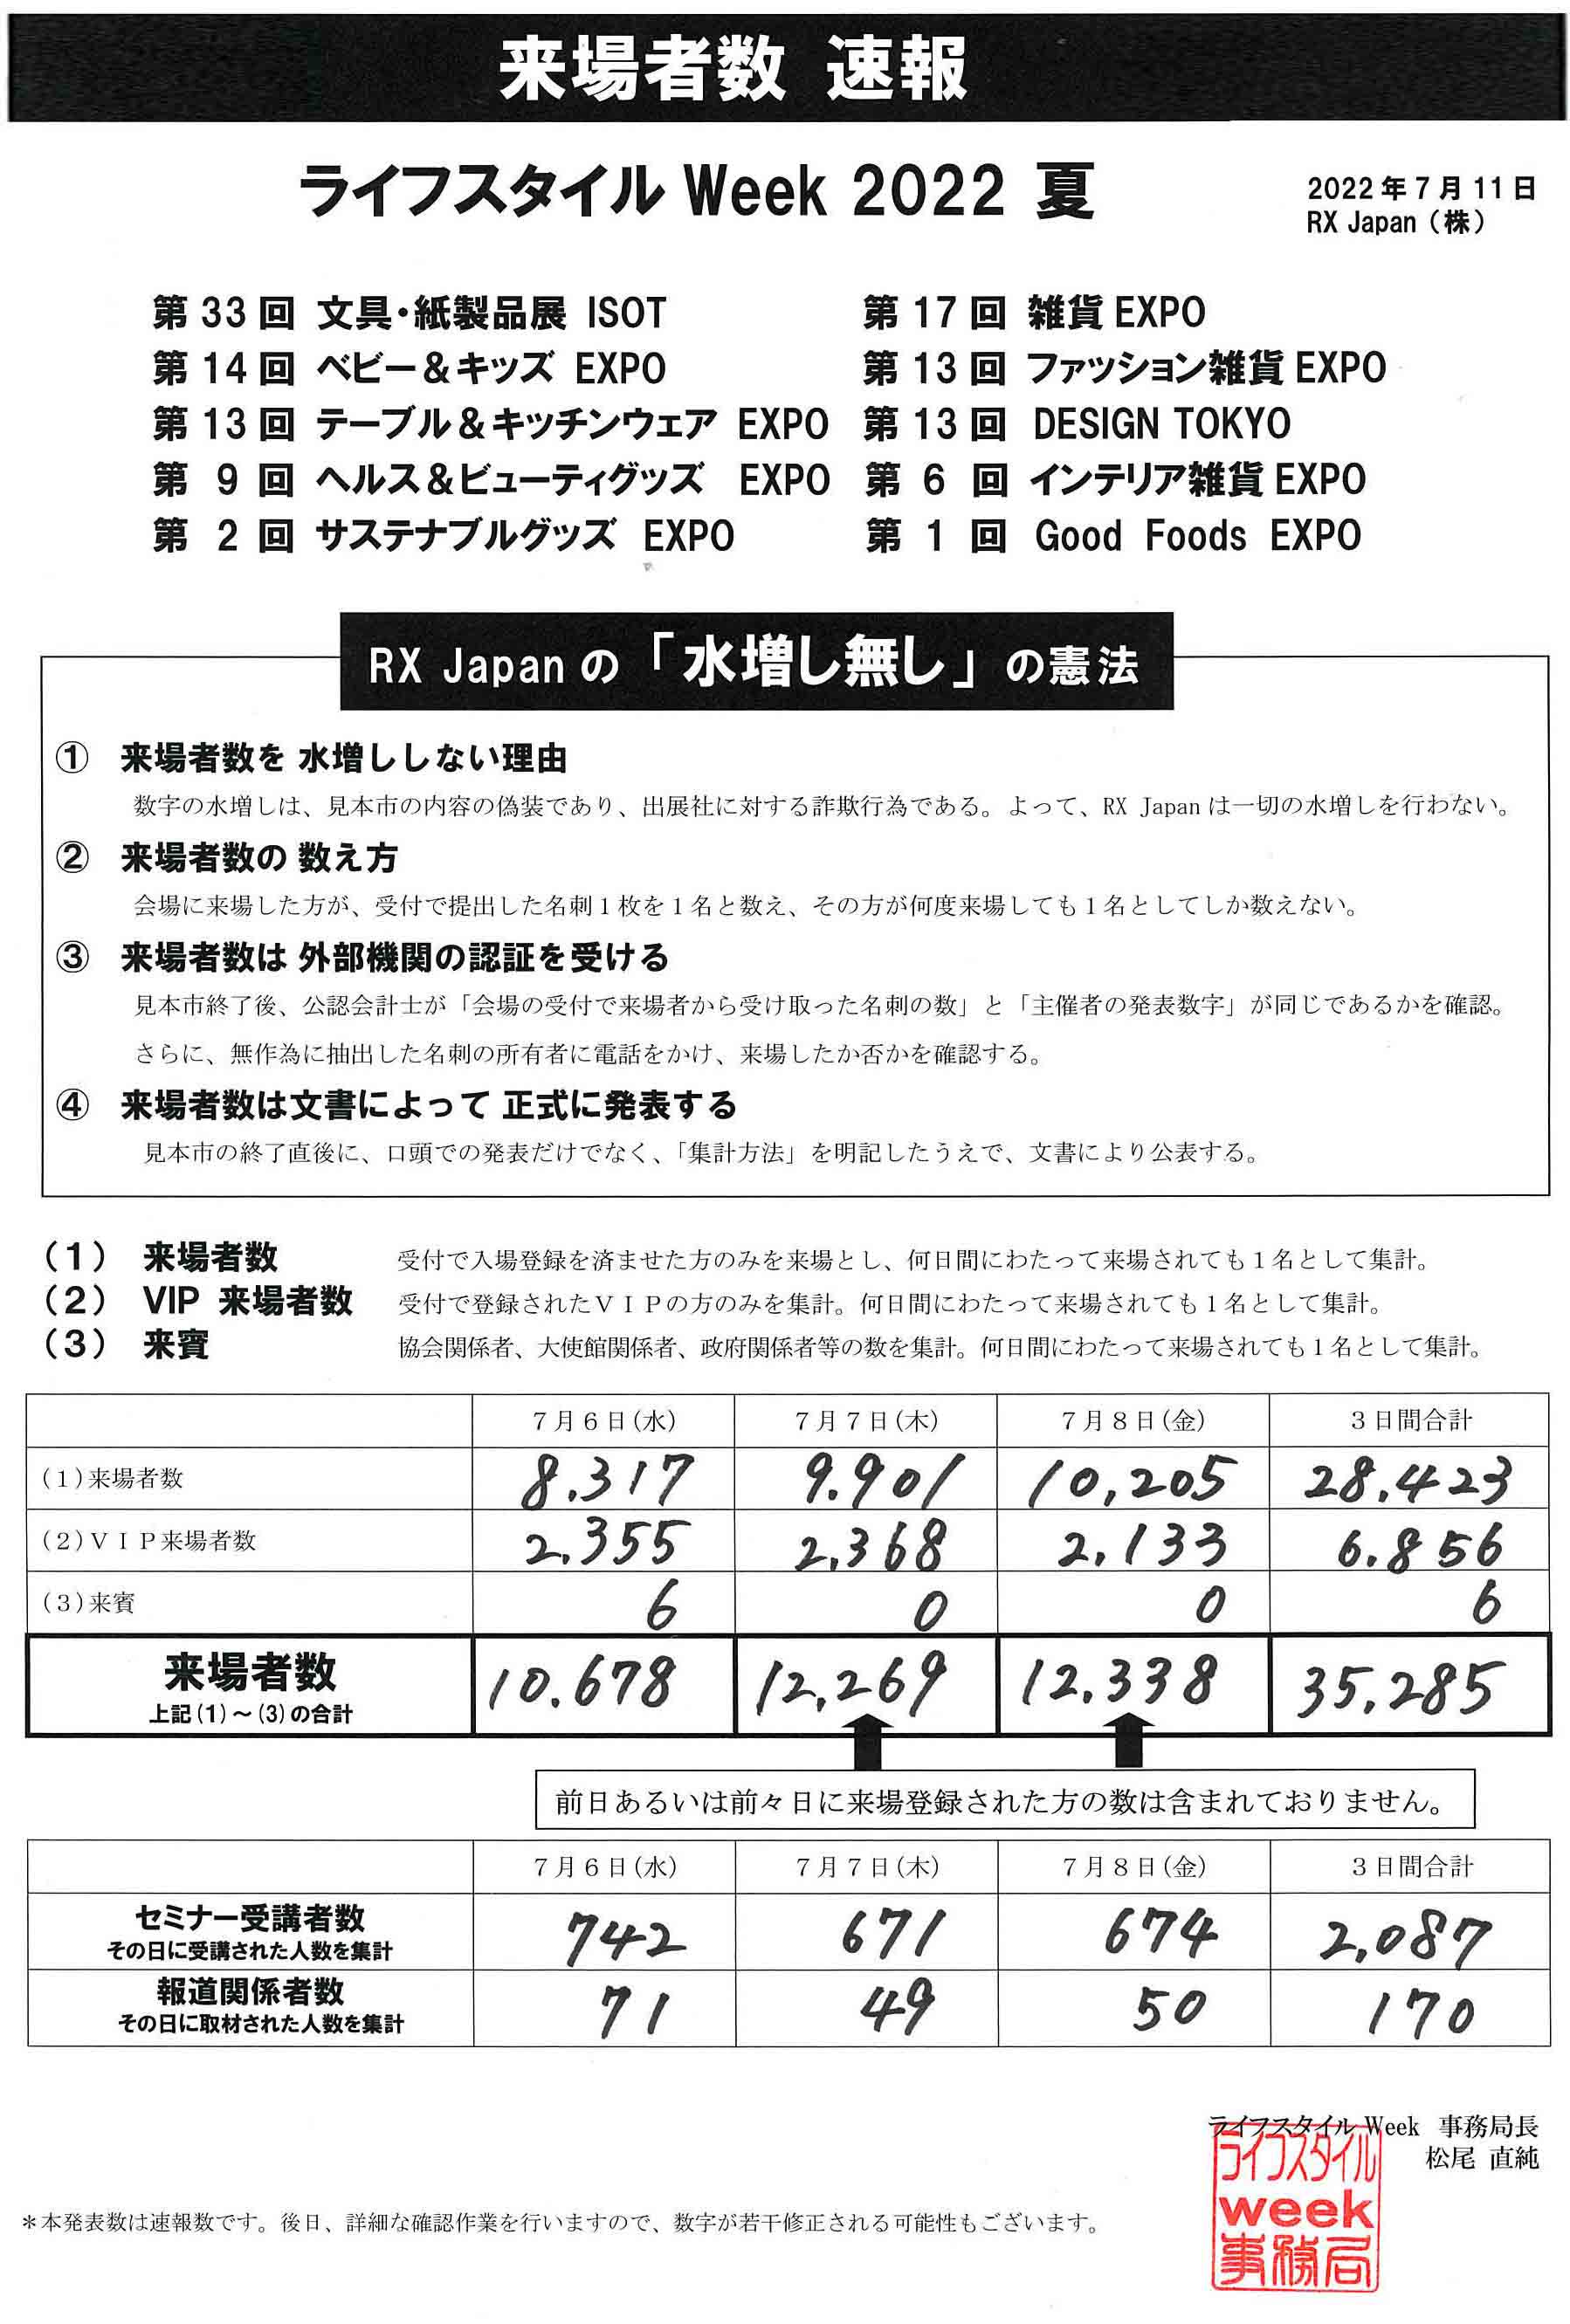 来場者数 速報
ライフスタイル Week 2022 夏
2022年7月11日
RX Japan（株）
第33回 文具・紙製品展 ISOT
第17回 雑貨EXPO
第14回 ベビー＆キッズ EXPO
第13回 ファッション雑貨EXPO
第13回 テーブル＆キッチンウェア EXPO
第13回 DESIGN TOKYO
第9回 ヘルス＆ビューティグッズ EXPO
第6回 インテリア雑貨EXPO
第2回 サステナブルグッズ EXPO
第1回 Good Foods EXPO
RX Japanの「水増し無し」の憲法
① 来場者数を 水増ししない理由
数字の水増しは、見本市の内容の偽装であり、出展社に対する詐欺行為である。よって、RX Japanは一切の水増しを行わない。
② 来場者数の 数え方
会場に来場した方が、受付で提出した名刺1枚を1名と数え、その方が何度来場しても1名としてしか数えない。
③ 来場者数は 外部機関の認証を受ける
見本市終了後、公認会計士が「会場の受付で来場者から受け取った名刺の数」と「主催者の発表数字」が同じであるかを確認。
さらに、無作為に抽出した名刺の所有者に電話をかけ、来場したか否かを確認する。
④ 来場者数は文書によって 正式に発表する
見本市の終了直後に、口頭での発表だけでなく、「集計方法」を明記したうえで、文書により公表する。
（1） 来場者数 受付で入場登録を済ませた方のみを来場とし、何日間にわたって来場されても1名として集計。
（2） VIP 来場者数 受付で登録されたＶＩＰの方のみを集計。何日間にわたって来場されても1名として集計。
（3） 来賓 協会関係者、大使館関係者、政府関係者等の数を集計。何日間にわたって来場されても1名として集計。
7月6日(水) 7月7日(木) 7月8日(金) 3日間合計
(1)来場者数 8,317 9,901 10,205 28,423
(2)ＶＩＰ来場者数 2,355 2,368 2,133 6,856
(3)来賓 6 0 0 6
来場者数 10,678 12,269 12,338 35,285
上記(1)～(3)の合計
前日あるいは前々日に来場登録された方の数は含まれておりません。
7月6日(水) 7月7日(木) 7月8日(金) 3日間合計
セミナー受講者数 742 671 674 2,087
その日に受講された人数を集計
報道関係者数 71 49 50 170
その日に取材された人数を集計
ライフスタイル Week 事務局長
松尾 直純
ライフスタイル
week
事務局
＊本発表数は速報数です。後日、詳細な確認作業を行いますので、数字が若干修正される可能性もございます。